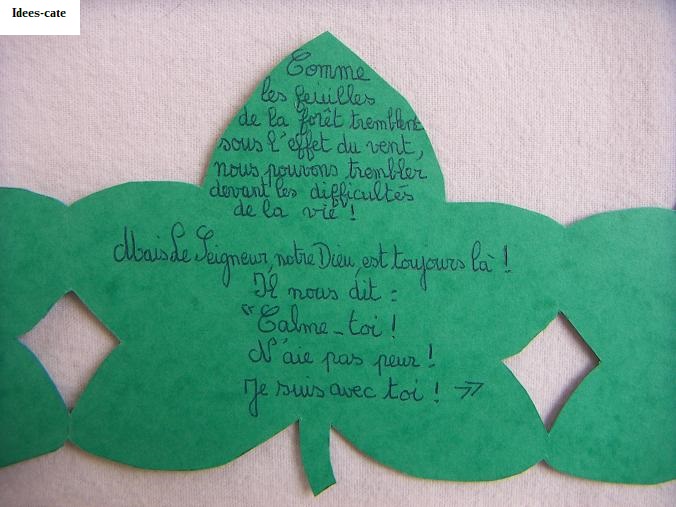 Idees-cate
Comme
les feuilles
de la forêt tremblent
sous l'effet du vent,
nous pouvons trembler
devant les difficultés
de la vie !
Mais Le Seigneur, notre Dieu, est toujours là !
Il nous dit :
"Calme-toi !
N'aie pas peur !
Je suis avec toi ! »